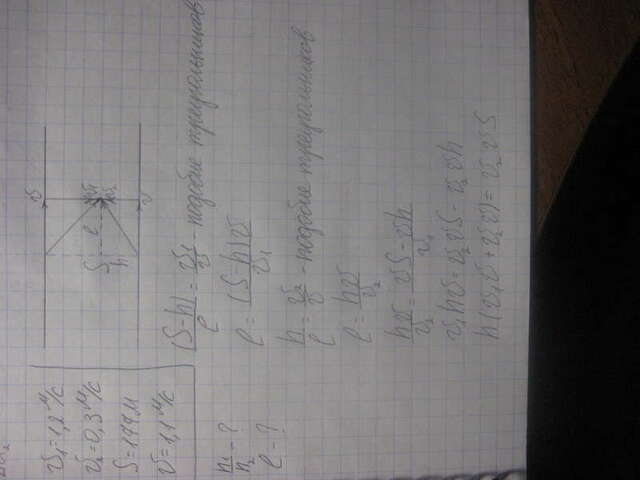 υ₁ = 1,2 м/с
υ₂ = 0,3 м/с
S = 144 м
υ = 1,1 м/с
h₁/h₂ - ?
ℓ - ?
υ
S
h
ℓ
υ
(S-h)/ℓ = υ₁/υ - подобие треугольников
ℓ = (S-h)υ/υ₁
h/ℓ = υ₂/υ - подобие треугольников
ℓ = hυ/υ₂
hυ/υ₂ = υS-υh/υ₁
υ₁hυ = υ₂υS - υ₂υh
h(υ₁υ + υ₂υ) = υ₂υS